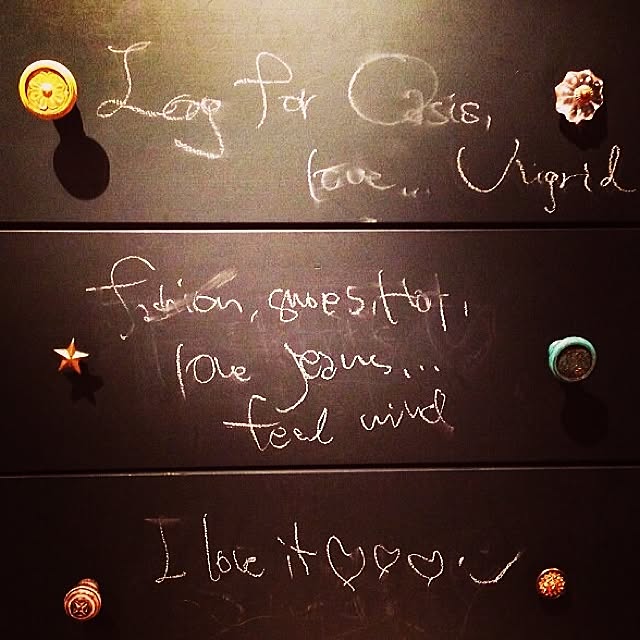 Log for Oasis,
love... Vrigrid
fashion, shoes, Hop,
love jeans...
feel mind
I love it